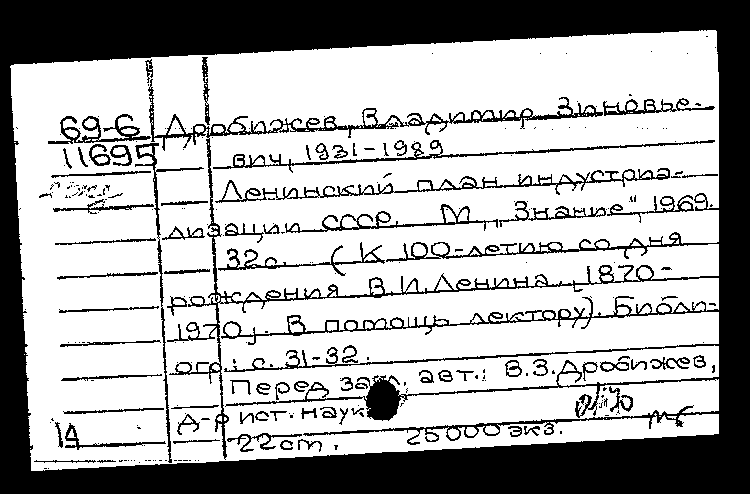 69-6 Дробижев, Владимир Зиновье-
11695 вич, 1931-1989
Ленинский план индустриа-
лизации СССР. М., "Знание", 1969.
32с. (К 100-летию со дня
рождения В.И.Ленина, 1870-
1970г. В помощь лектору). Библи-
огр.: с. 31-32.
Перед загл. авт.: В.З.Дробижев,
д-р ист. наук
14 22 cm. 25000 экз.